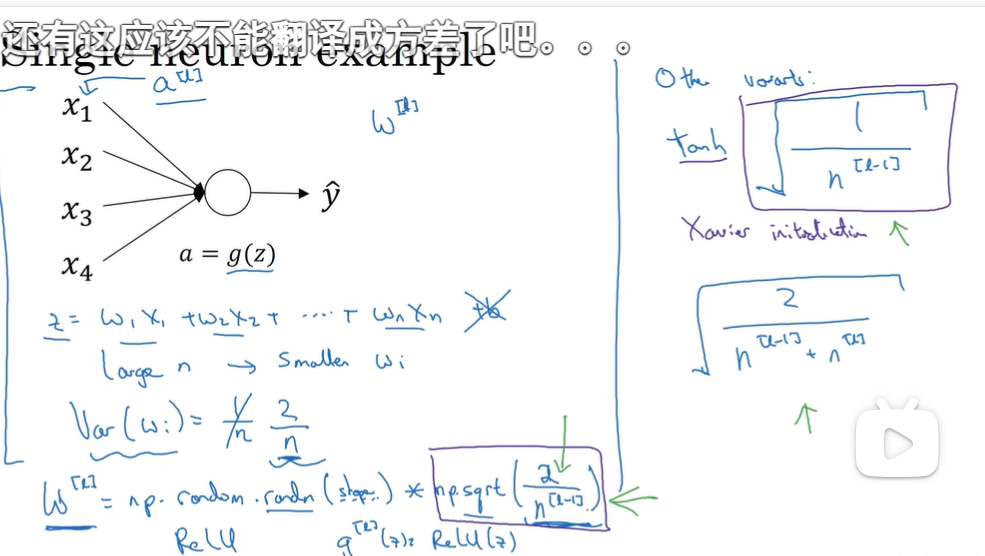 还有这应该不能翻译成方差了吧。。。
Single neuron example
a^[l]
x₁
x₂
x₃
x₄
ŷ
a = g(z)
w^[l]
z = w₁x₁ + w₂x₂ + ···· + wₙxₙ +b
Large n → Smaller wᵢ
Var(wᵢ) = 1/n 2/n
W^[l] = np.random.randn(shape..) * np.sqrt(2/n^[l-1])
ReLU g^[l](z) = ReLU(z)
Other variants:
Tanh √(1/n^[l-1])
Xavier initialization ↑
√(2/(n^[l-1] + n^[l]))
↑